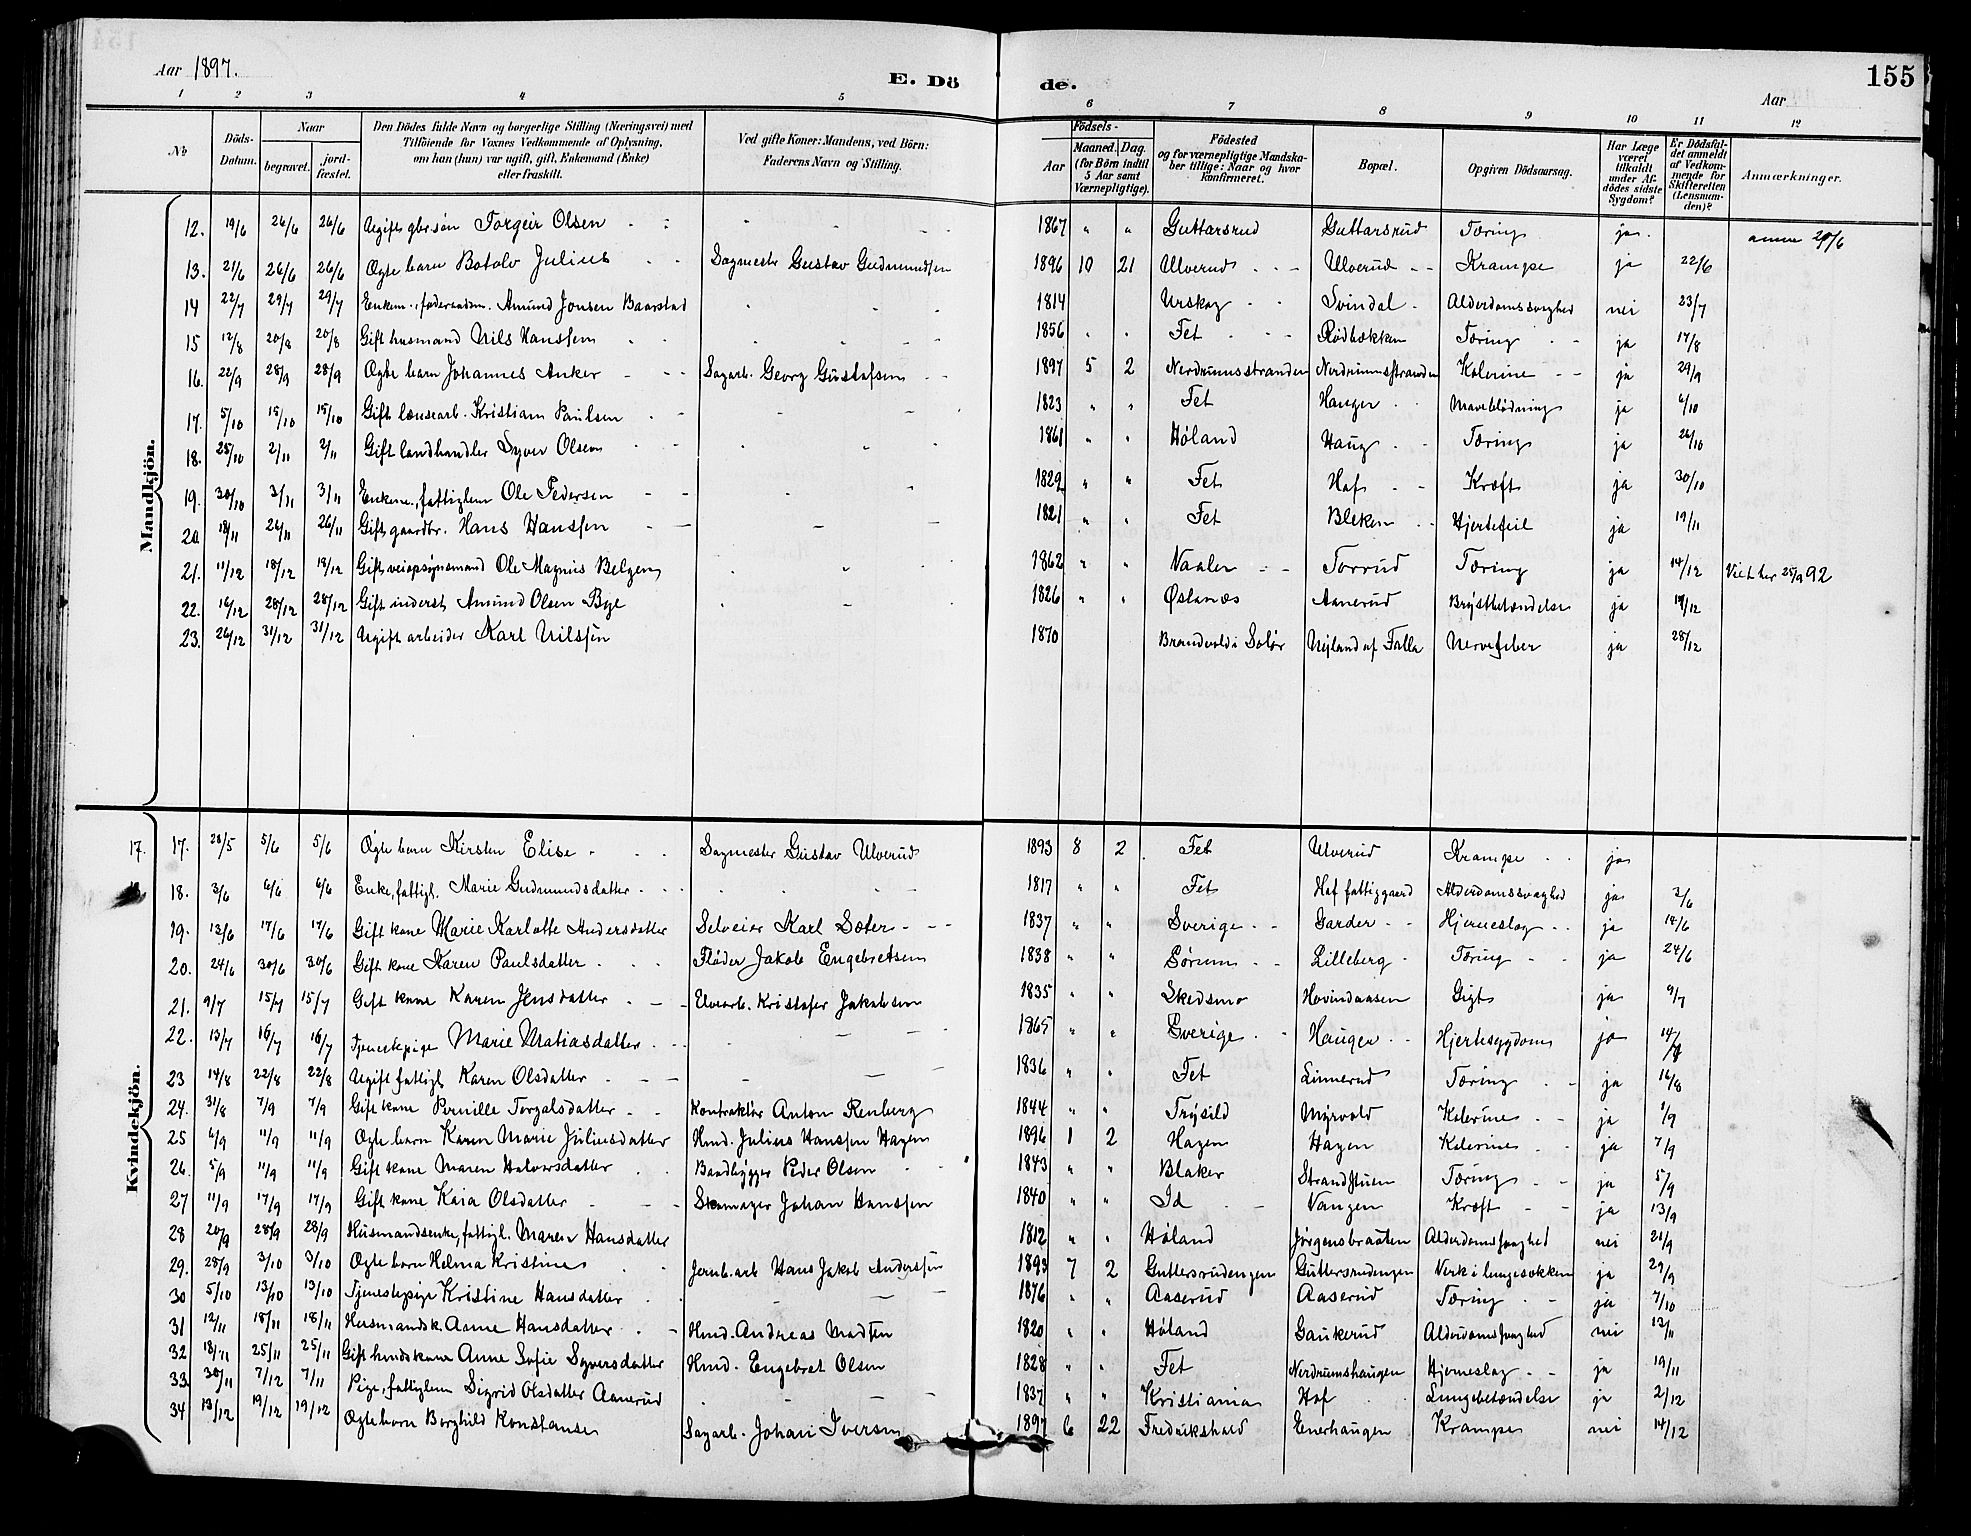 Aar 1897.
E. Dö
de.
155
Aar
1 2 3 4 5 6 7 8 9 10 11 12
No
Döds-Datum.
Naar
begravet.
jord-fæstet.
Den Dödes fulde Navn og borgerlige Stilling (Næringsvei) med
Tilföiende for Voxnes Vedkommende af Oplysning,
om han (hun) var ugift, gift, Enkemand (Enke)
eller fraskilt.
Ved gifte Koner: Mandens, ved Börn:
Faderens Navn og Stilling.
Födsels-
Aar
Maaned. Dag.
(for Börn indtil
5 Aar samt
Værnepligtige).
Födested
og for værnepligtige Mandska-
ber tillige: Naar og hvor
konfirmeret.
Bopæl.
Opgiven Dödsaarsag.
Har Læge
været
tilkaldt
under Af-
dödes sidste
Sygdom?
Er Dödsfal-
det anmeldt
af Vedkom-
mende for
Skifteretten
(Lensman-
den)?
Anmærkninger.
Mandkjön.
12. 19/6 26/6 26/6 Ugift gbr.søn Torgeir Olsen 1867 " " Guttarsrud Guttarsrud Tæring ja. anm 29/6
13. 21/6 26/6 26/6 Ægte barn Botolv Julius Sagmester Gustav Gudmundsen 1896 10 21 Ulverud Ulverud Krampe ja 22/6
14 22/7 29/7 29/7 Enkem., føderaadsm. Amund Jonsen Baarstad 1814 Urskog Svindal Alderdomssvaghed nei 23/7
15 12/8 20/8 20/8 Gift husmand Nils Hanssen 1856 " " Fet Rødbækken Tæring ja 17/8
16. 22/9 28/9 28/9 Ægte barn Johannes Anker Sagarb. Georg Gustafsen 1897 5 2 Nerdrumsstranden Nerdrumsstranden Kolerine ja 29/9
17. 5/10 15/10 15/10 Gift lænsearb. Kristian Paulsen 1823 " " Fet Hauger Maveblødning ja 6/10
18. 25/10 2/11 2/11 Gift landhandler Syver Olsen 1861 " " Høland Haug Tæring ja 26/10
19. 30/10 3/11 3/11 Enkem., fattiglem Ole Pedersen 1829 " " Fet Hof Kræft ja 30/10
20. 18/11 26/11 26/11 Gift gaardbr. Hans Hanssen 1821 " " Fet Bleken Hjertefeil ja 19/11
21. 11/12 18/12 18/12 Gift veiopsynsmand Ole Magnus Belgen 1862 " " Vaaler Torrud Tæring ja 14/12 Viet her 25/9 92
22. 16/12 28/12 28/12 Gift inderst Amund Olsen Bye 1826 " " Øslanæs Aanerud Brystbetændelse ja 19/12
23. 26/12 31/12 31/12 Ugift arbeider Karl Nilssen 1870 Brandvold i Solør Nyland af Falla Nervefeber ja 28/12
Kvindekjön.
17. 17. 28/5 5/6 5/6 Ægte barn Kirsten Elise Sagmester Gustav Ulverud 1893 8 2 Fet Ulverud Krampe ja
18. 3/6 6/6 6/6 Enke, fattigl. Marie Gudmundsdatter 1817 " " Fet Hof fattiggaard Alderdomssvaghed ja 3/6
19. 13/6 17/6 17/6 Gift kone Marie Karlotte Andersdatter Selveier Karl Sæter 1837 " " Sverige Garder Hjerneslag ja 14/6
20. 24/6 30/6 30/6 Gift kone Karen Paulsdatter Fløder Jakob Engebretsen 1838 " " Sørum Lilleberg Tæring ja 24/6
21. 9/7 15/7 15/7 Gift kone Karen Jensdatter Elvearb. Kristofer Jakobsen 1835 " " Skedsmo Hovindaasen Gigt ja 9/7
22. 13/7 16/7 16/7 Tjenestepige Marie Matiasdatter 1865 " " Sverige Hauger Hjertesygdom ja 14/7
23 14/8 22/8 22/8 Ugift fattigl. Karen Olsdatter 1836 " " Fet Linnerud Tæring ja 16/8
24. 31/8 7/9 7/9 Gift kone Pernille Torgalsdatter Kontraktør Anton Renberg 1844 " " Trysild Myrvold Kolerine ja 1/9
25 6/9 11/9 11/9 Ægte barn Karen Marie Juliusdatter Hmd. Julius Hanssen Hagen 1896 1 2 Hagen Hagen Kolerine ja 7/9
26. 5/9 11/9 11/9 Gift kone Maren Halvorsdatter Baadbygger Peder Olsen 1843 " " Blaker Strandstuen Tæring ja 5/9
27 11/9 17/9 17/9 Gift kone Kaia Olsdatter Skomager Johan Hanssen 1840 " " Id Vangen Kræft ja 13/9
28 20/9 28/9 28/9 Husmandsenke, fattigl. Maren Hansdatter 1812 " " Høland Jørgensbraaten Alderdomssvaghed nei 21/9
29. 28/9 3/10 3/10 Ægte barn Helma Kristine Jernb.arb Hans Jakob Anderssen 1893 7 2 Guttersrudengen Guttersrudengen Verk i lungesækken ja 29/9
30 5/10 13/10 13/10 Tjenestepige Kristine Hansdatter 1876 " " Aaserud Aaserud Tæring ja 7/10
31 12/11 18/11 18/11 Husmandsk. Anne Hansdatter Hmd. Andreas Madsen 1820 " " Høland Gaukerud Alderdomssvaghed nei 13/11
32 18/11 25/11 25/11 Gift hmdskone Anne Sofie Syversdatter Hmd. Engebret Olsen 1828 " " Fet Nerdrumshaugen Hjerneslag ja 19/11
33. 30/11 7/12 7/11 Pige, fattiglem Sigrid Olsdatter Aanerud 1837 " " Kristiania Hof Lungebetændelse ja 2/12
34 13/12 19/12 19/12 Ægte barn Borghild Konstanse Sagarb. Johan Iversen 1897 6 22 Fredrikshald Enerhaugen Krampe nei 14/12